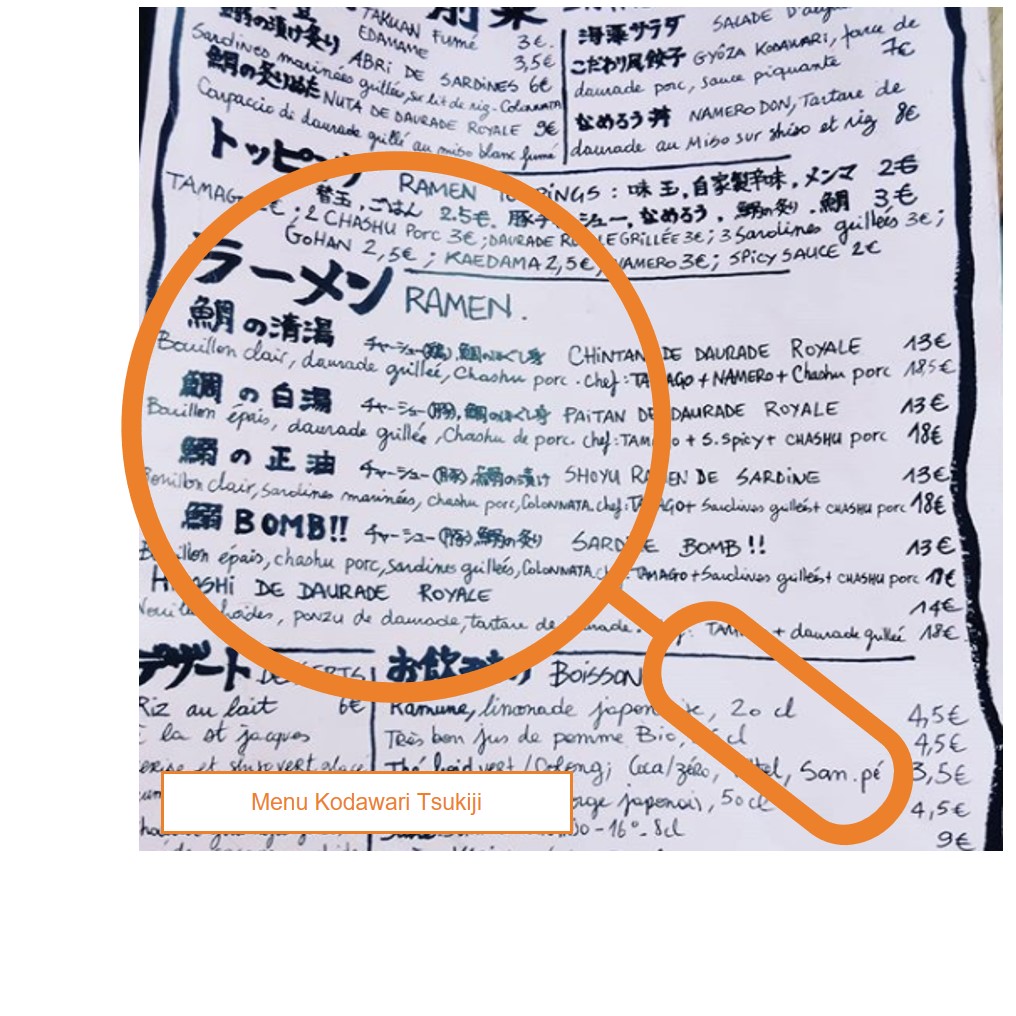 TAKUAN Fumé 3€.
EDAMAME 3,5€
鰯の漬け炙り ABRI DE SARDINES 6€
Sardines marinées grillées, sur lit de riz - Colonnata
鯛の炙りぬた NUTA DE DAURADE ROYALE 9€
Carpaccio de daurade grillé au miso blanc fumé
海藻サラダ SALADE D'algues
こだわり尾餃子 GYÔZA KODAWARI, farce de 7€
daurade porc, sauce piquante
なめろう丼 NAMERO DON, Tartare de 8€
daurade au Miso sur shiso et riz
トッピング RAMEN TOPPINGS : 味玉, 自家製辛味, メンマ 2€
替玉, ごはん 2.5€. 豚チャーシュー, なめろう, 鰯の炙り, 鯛 3€
TAMAGO 2€ ; 2 CHASHU Porc 3€ ; DAURADE ROYALE GRILLÉE 3€ ; 3 Sardines grillées 3€ ;
GOHAN 2,5€ ; KAEDAMA 2,5€ ; NAMERO 3€ ; SPicy SAUCE 2€
ラーメン RAMEN.
鯛の清湯 チャーシュー(鶏), 鯛のほぐし身 CHiNTAN DE DAURADE ROYALE 13€
Bouillon clair, daurade grillée, Chashu porc. chef : TAMAGO + NAMERO + Chashu porc 18,5€
鯛の白湯 チャーシュー(豚), 鯛のほぐし身 PAiTAN DE DAURADE ROYALE 13€
Bouillon épais, daurade grillée, Chashu de porc. chef : TAMAGO + S. Spicy + CHASHU porc 18€
鰯の正油 チャーシュー(豚), 鰯の漬け SHOYU RAMEN DE SARDiNE 13€
Bouillon clair, Sardines marinées, chashu porc, COLONNATA. chef : TAMAGO + Sardines grillées + CHASHU porc 18€
鰯BOMB!! チャーシュー(豚), 鰯の炙り SARDiNE BOMB!! 13€
Bouillon épais, chashu porc, Sardines grillées, COLONNATA. chef : TAMAGO + Sardines grillées + CHASHU porc 17€
HiYASHi DE DAURADE ROYALE 14€
Nouilles froides, ponzu de daurade, tartare de daurade. chef : TAMAGO + daurade grillée 18€.
デザート DESSERTS
Riz au lait 6€
la st jacques
cerise et shiso vert glacé
お飲み物 BOiSSON
Ramune, limonade japonaise, 20 cl 4,5€
Très bon jus de pomme Bio, cl 4,5€
Thé froid vert / Oolong ; Coca/zéro, Vittel, San. pé 3,5€
orge japonais, 50cl 4,5€
-16° - 8cl 9€
Menu Kodawari Tsukiji